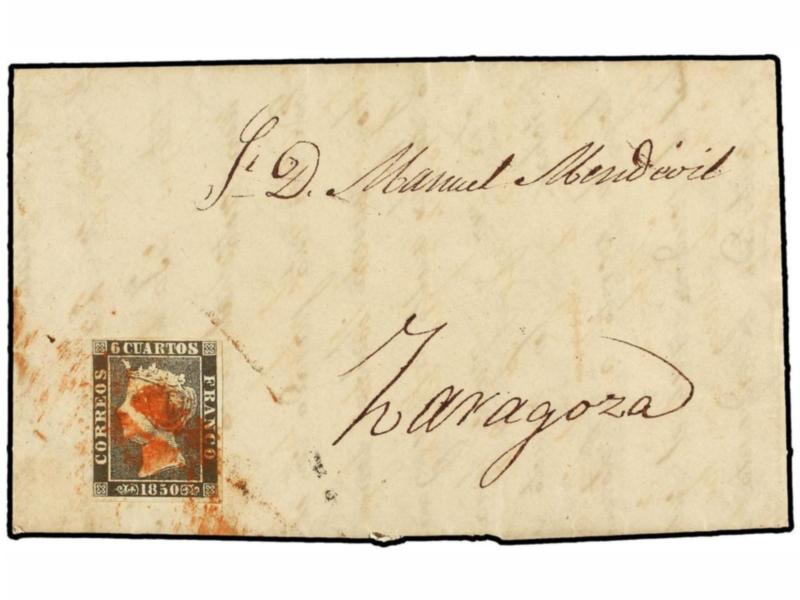 Sr. D. Manuel Mendivil
Zaragoza
6 CUARTOS
CORREOS
FRANCO
1850